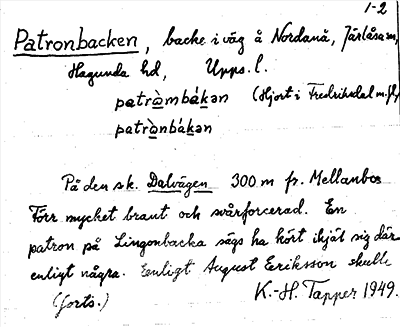 1-2
Patronbacken, backe i väg å Nordanå, Järlåsa sn,
Hagunda hd, Upps. l.
patràmbákan (Hjort i Fredriksdal m.fl.)
patrànbákan
På den sk. Dalvägen 300 m fr. Mellanbo
Förr mycket brant och svårforcerad. En
patron på Lingonbacka sägs ha kört ihjäl sig där
enligt några. Enligt August Eriksson skulle
(forts.) K.-H. Tapper 1949.